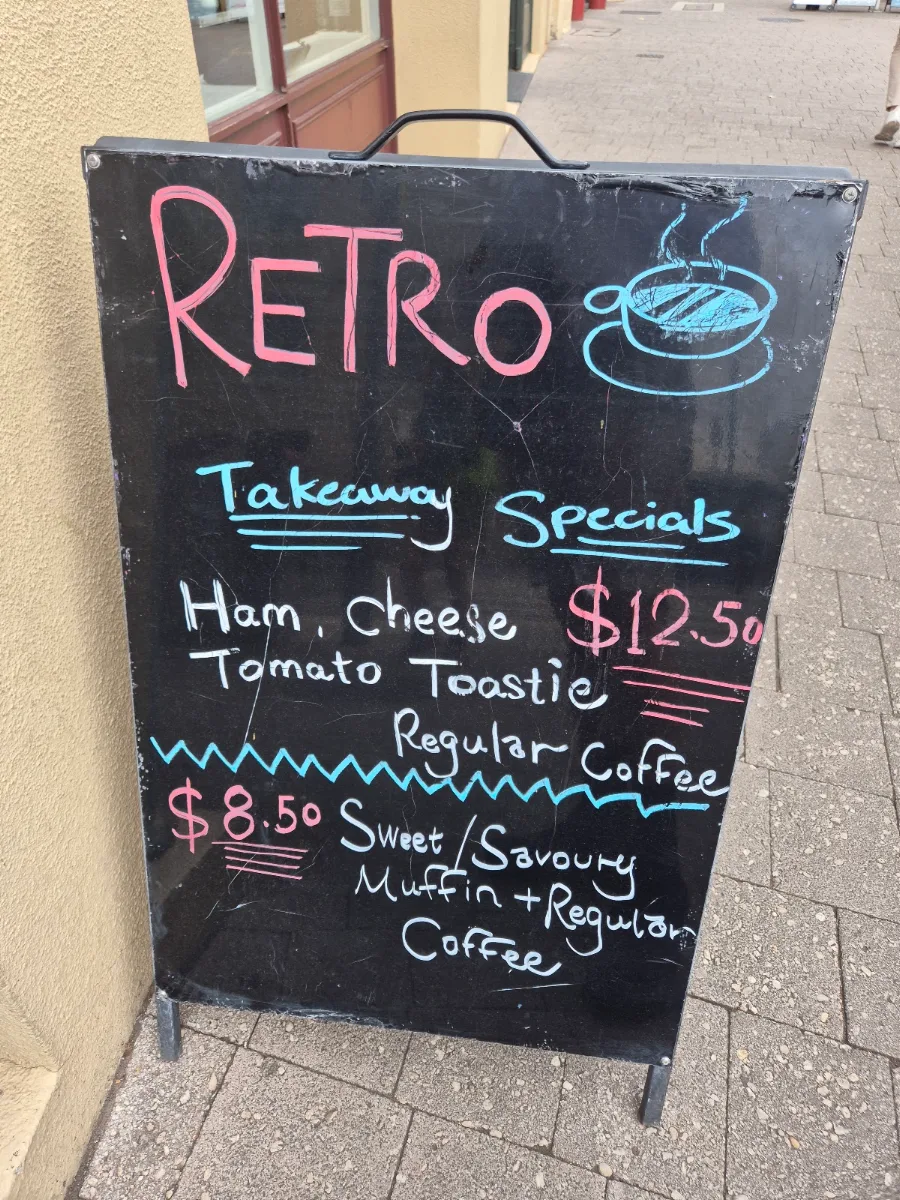 RETRO
Takeaway Specials
Ham, Cheese $12.50
Tomato Toastie
Regular Coffee
$8.50 Sweet/Savoury
Muffin + Regular
Coffee